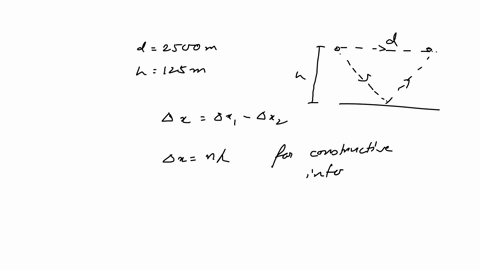 d = 2500 m
h = 125 m
d
h
Δx = Δx₁ - Δx₂
Δx = nλ for constructive
infer